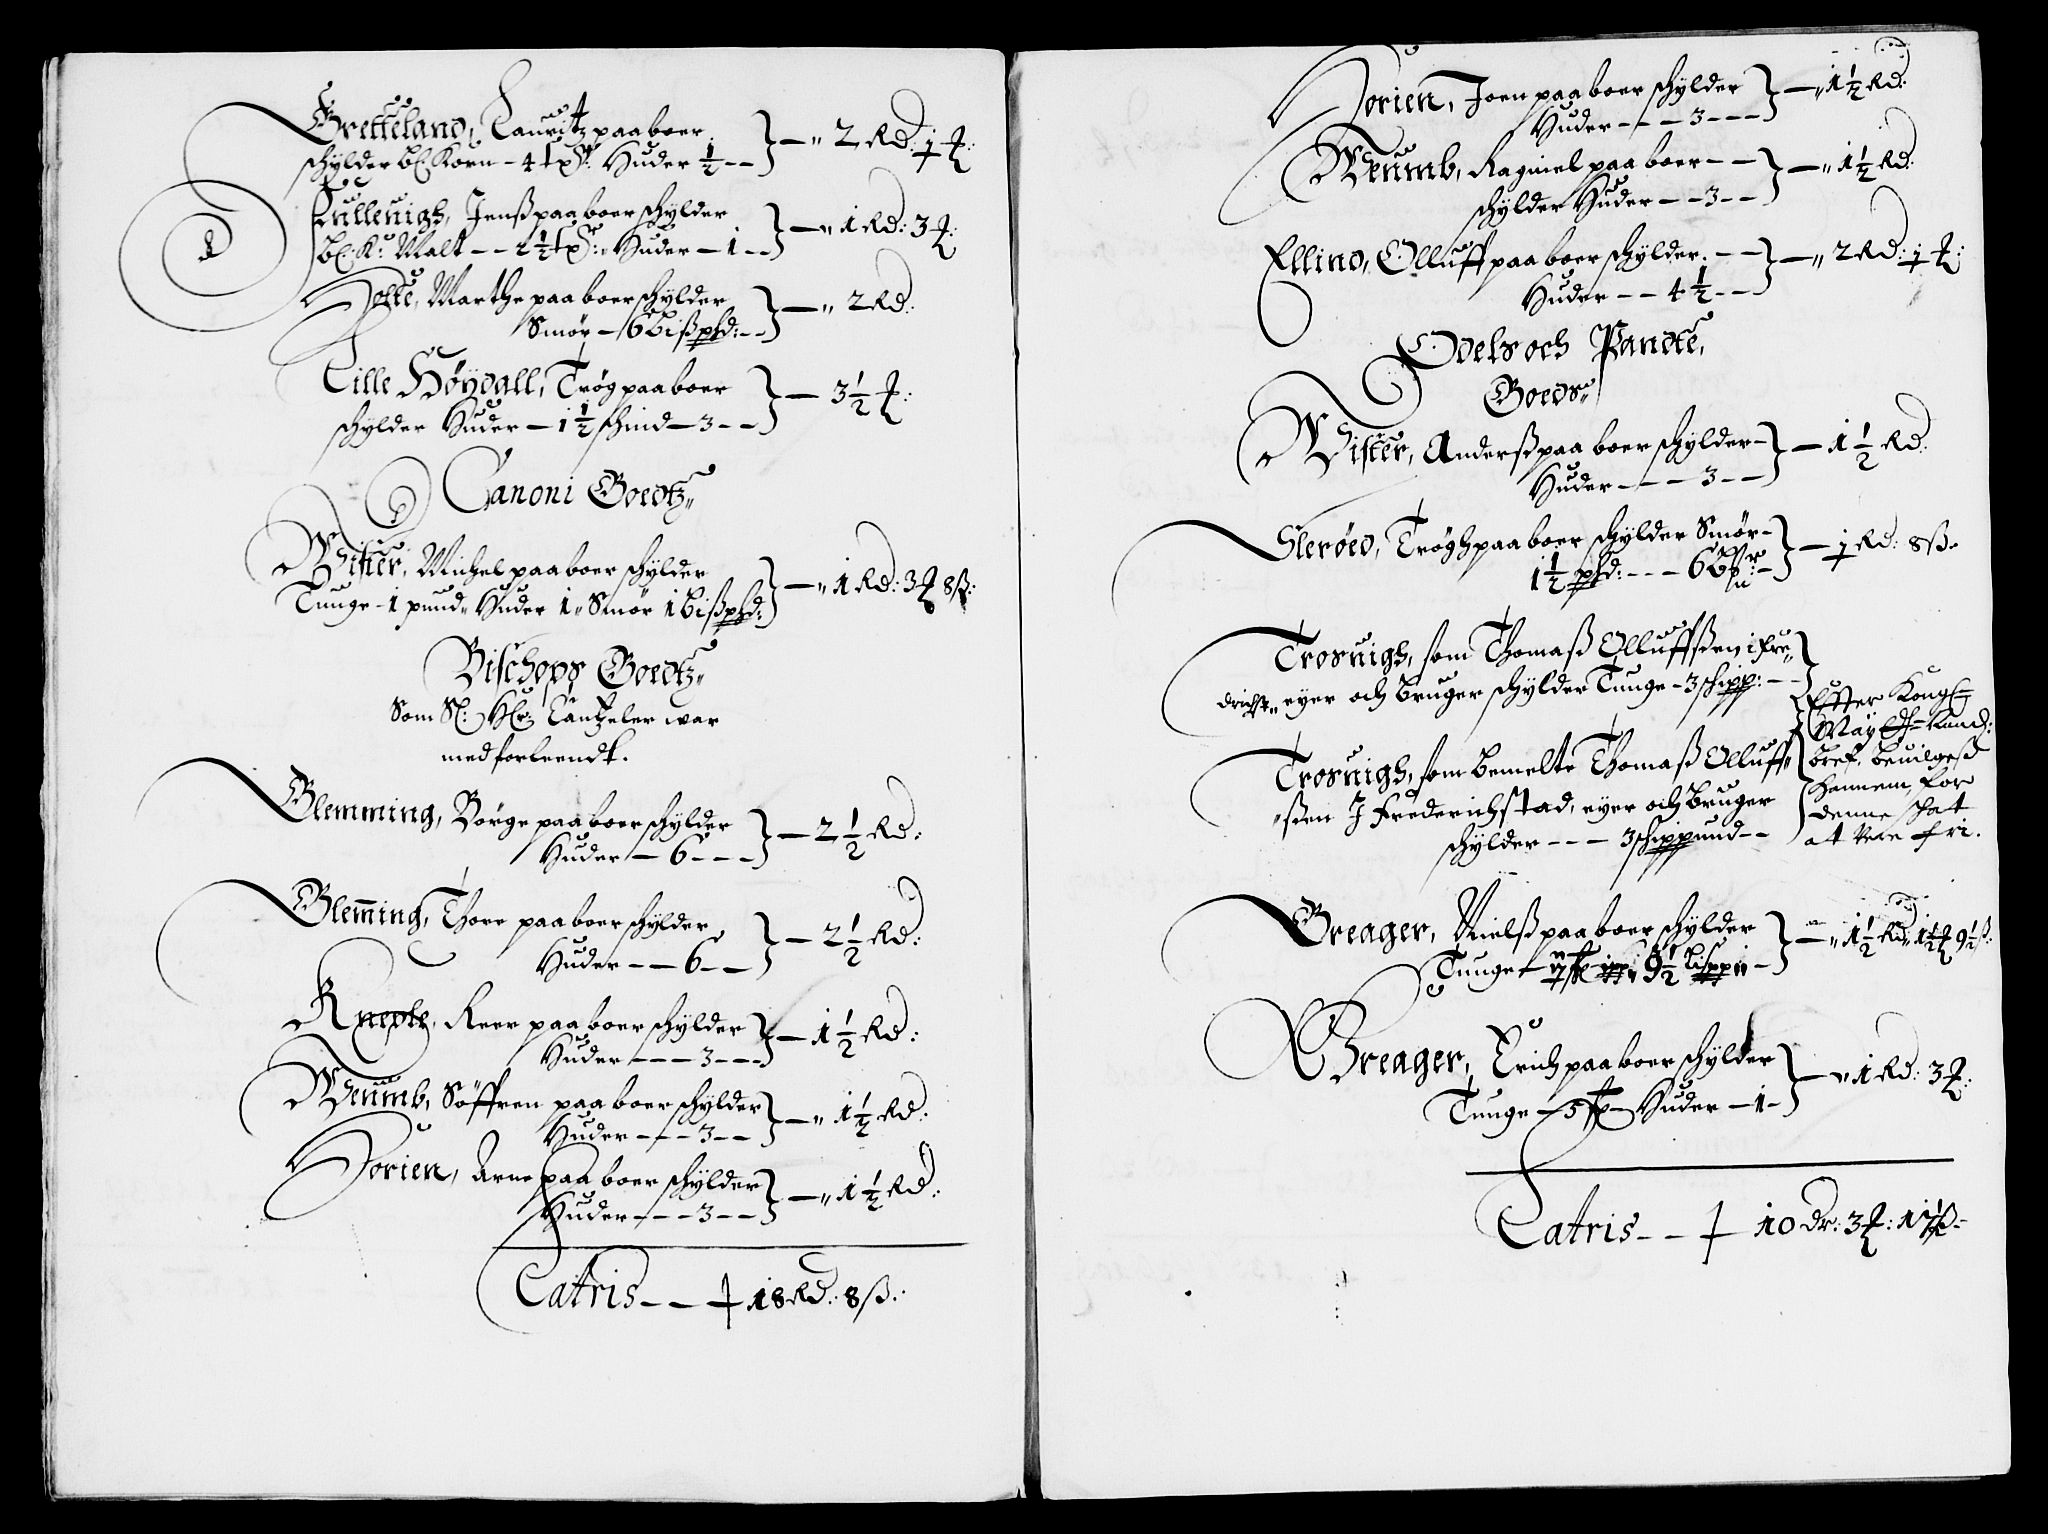 Gretteland, Lauritz paa boer
schylder bl: Korn - 4 tpd: Huder ½ -- } - " 2 Rd: 1 ƶ:
Lulleuigh, Jenß paa boer schylder
bl: K: Malt -- 2½ tpd: " Huder - 1 -- } - " 1 Rd: 3 ƶ:
Holte, Marthe paa boer schylder
Smør - 6 bißpd: -- } - " 2 Rd:
Lille Høydall, Trøg paa boer
schylder Huder - 1½ schind - 3 -- } - 3½ ƶ:
Canoni Goedtz"
Wister, Michel paa boer schylder
Tunge - 1 pund " Huder 1 " Smør 1 bißpd: } - " 1 Rd: 3 ƶ 8 ß:
Bischops Goedtz"
Som Sl: Hr: Cantzeler war
med forleendt.
Glemming, Børge paa boer schylder
Huder - 6 --- } - 2½ Rd:
Glem̄ing, Thore paa boer schylder
Huder -- 6 -- } - 2½ Rd:
Knepte, Reer paa boer schylder
Huder --- 3 --- } - 1½ Rd:
Weumb, Söffren paa boer schylder
Huder --- 3 -- } - " 1½ Rd:
Torien, Arne paa boer schylder
Huder --- 3 -- } - " 1½ Rd:
Latris -- 18 Rd: 8 ß:
Torien, Joen paa boer schylder
Huder --- 3 --- } - " 1½ Rd:
Weumb, Ragniel paa boer --
schylder Huder -- 3 -- } - " 1½ Rd:
Ellind, Olluff paa boer schylder. --
Huder -- 4½ -- } - " 2 Rd: 1 ƶ:
Odels och Pandte,
Goeds"
Wister, Anderß paa boer schylder -
Huder --- 3 -- } - 1½ Rd:
Slerøed, Trøgh paa boer schylder Smør -
1½ pd: --- 6 - } - 1 Rd: 8 ß.
Trosuigh, som Thomaß Olluffßen i Fre"
drichst" eyer och bruger schylder Tunge - 3 schipp: --
Trosuigh, som bemelte Thomaß Olluff"
"ßen J Frederichstad, eyer och bruger
schylder --- 3 schippund --
Effter Kongl:
May
bref, beuilgeß
hannem, for
denne schat
at vere fri.
Greager, Nielß paa boer schylder
Tunge - 9½ lispp: " - } - " 1½ Rd: 1½ ƶ 9½ ß:
Greager, Erich paa boer schylder
Tunge - 5 - Huder - 1 - } - " 1 Rd: 3 ƶ:
Latris -- 10 dr: 3 ƶ: 17½ ß -